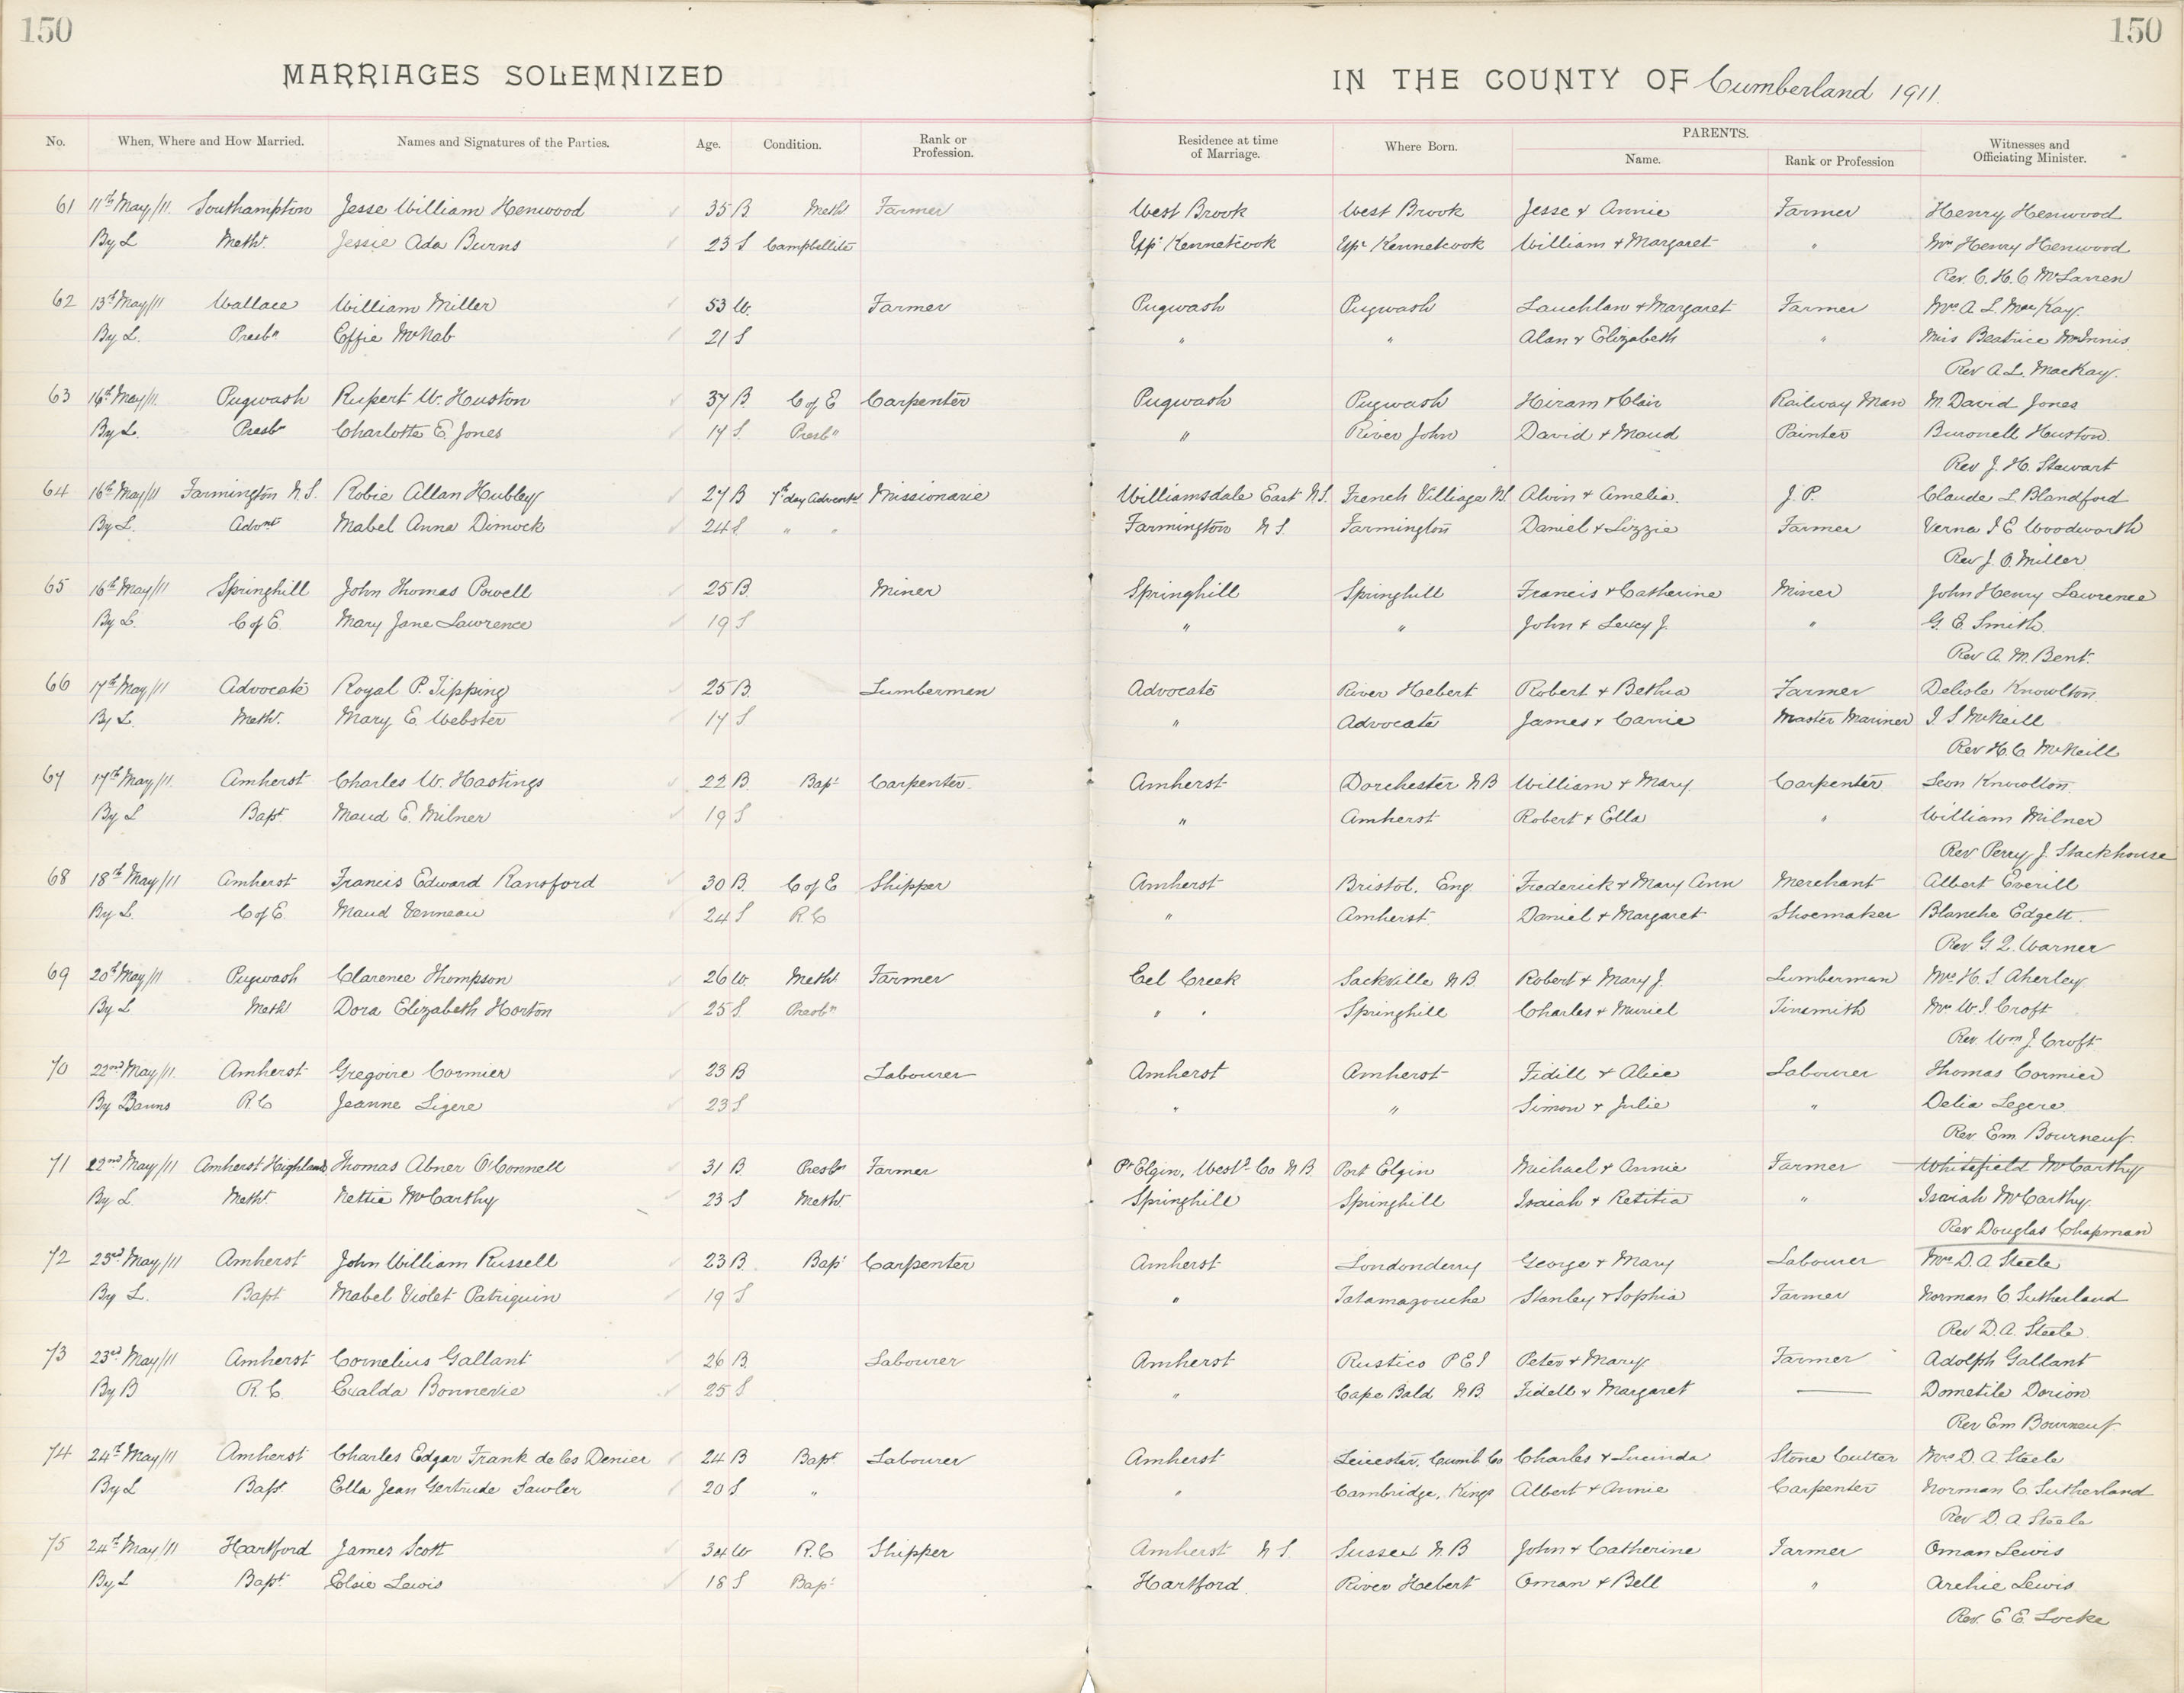 150
150
MARRIAGES SOLEMNIZED
IN THE COUNTY OF Cumberland 1911.
No. When, Where and How Married. Names and Signatures of the Parties. Age. Condition. Rank or Profession. Residence at time of Marriage. Where Born. PARENTS. Name. Rank or Profession Witnesses and Officiating Minister.
61 11th May/11. Southampton Jesse William Henwood 35 B Meth Farmer West Brook West Brook Jesse & Annie Farmer Henry Henwood
By L Meth. Jessie Ada Burns 23 S Campbellite Upr Kennetcook Upr Kennetcook William & Margaret " Mrs Henry Henwood
Rev. C. H. C McLarren
62 13th May/11 Wallace William Miller 53 W. Farmer Pugwash Pugwash Lauchlan & Margaret Farmer Mrs A L. MacKay.
By L. Presbn Effie McNab 21 S " " Alan & Elizabeth " Miss Beatrice McInnis
Rev A. L. MacKay.
63 16th May/11. Pugwash Rupert W. Huston 37 B. C of E Carpenter Pugwash Pugwash Hiram & Clair Railway Man M. David Jones
By L. Presbn Charlotte E. Jones 17 S. Presbn " River John David & Maud Painter Huston
Rev J. H. Stewart
64 16th May/11 Farmington N.S. Robie Allan Hubley 27 B 7th day Advent Missionarie Williamsdale East N.S. French Villiage N.S. Alvin & Amelia. J. P. Claude L Blandford
By L. Advnt Mabel Anna Dimock 24 S. " " Farmington N S. Farmington Daniel & Lizzie Farmer Verna I E Woodworth
Rev J. O. Miller
65 16th May/11 Springhill John Thomas Powell 25 B. Miner Springhill Springhill Francis & Catherine Miner John Henry Lawrence
By L. C of E. Mary Jane Lawrence 19 S " " John & Lucy J. " G. E. Smith.
Rev A. M. Bent.
66 17th May/11 Advocate Royal P. Tipping 25 B. Lumberman Advocate River Hebert Robert & Bethia Farmer Delisle Knowlton
By L. Meth. Mary E. Webster 17 S " Advocate James & Carrie Master Mariner I S McNeill
Rev H. C McNeill
67 17th May/11. Amherst Charles W. Hastings 22 B. Bapt Carpenter. Amherst Dorchester N B William & Mary Carpenter Leon Knowlton.
By L Bapt. Maud E. Milner 19 S " Amherst Robert & Ella " William Milner
Rev Perry J. Stackhouse
68 18th May/11 Amherst Francis Edward Ransford 30 B. C of E Shipper Amherst Bristol. Eng. Frederick & Mary Ann Merchant Albert Everill
By L. C of E. Maud Venneau 24 S R C " Amherst. Daniel & Margaret Shoemaker Blanche Edgett.
Rev G. Q. Warner
69 20th May/11 Pugwash Clarence Thompson 26 W. Meth Farmer Eel Creek Sackville N B. Robert & Mary J. Lumberman Mrs H. S. Aherley
By L Meth Dora Elizabeth Horton 25 S. Presbn " " Springhill Charles & Muriel Tinsmith Mrs W. J. Croft
Rev. Wm J. Croft
70 22nd May/11. Amherst Gregoire Cormier 23 B Labourer Amherst Amherst Fidill & Alice Labourer Thomas Cormier
By Banns R.C Jeanne Ligere 23 S " " Simon & Julie " Delia Legere.
Rev. Em Bourneuf.
71 22nd May/11 Amherst Highlands Thomas Abner O'Connell 31 B Presbn Farmer Pt Elgin, Westd Co N B. Port Elgin Michael & Annie Farmer Whitefield McCarthy
By L. Meth. Nettie McCarthy 23 S Meth. Springhill Springhill Isaiah & Retitia " Isaiah McCarthy.
Rev Douglas Chapman
72 23rd May/11 Amherst John William Russell 23 B Bapt Carpenter Amherst Londonderry George & Mary Labourer Mrs D. A Steele
By L. Bapt Mabel Violet Patriquin 19 S " Tatamagouche Stanley & Sophia Farmer Norman C. Sutherland
Rev D. A. Steele.
73 23rd May/11 Amherst Cornelius Gallant 26 B. Labourer Amherst Rustico P E I Peter & Mary Farmer Adolph Gallant
By B R. C. Evalda Bonnevie 25 S " Cape Bald N B. Fidell & Margaret — Dometile Dorion
Rev Em Bourneuf.
74 24th May/11 Amherst Charles Edgar Frank de les Denier 24 B Bapt Labourer Amherst Leicester, Cumb Co Charles & Lucinda Stone Cutter Mrs D. A. Steele
By L Bapt. Ella Jean Gertrude Sawler 20 S " " Cambridge, Kings Albert & Annie Carpenter Norman C. Sutherland
Rev D. A Steele
75 24th May/11 Hartford James Scott 34 W R.C Shipper Amherst N S. Sussex N. B John & Catherine Farmer Oman Lewis
By L Bapt. Elsie Lewis 18 S Bapt Hartford. River Hebert Oman & Bell " Archie Lewis
Rev. E. E. Locke